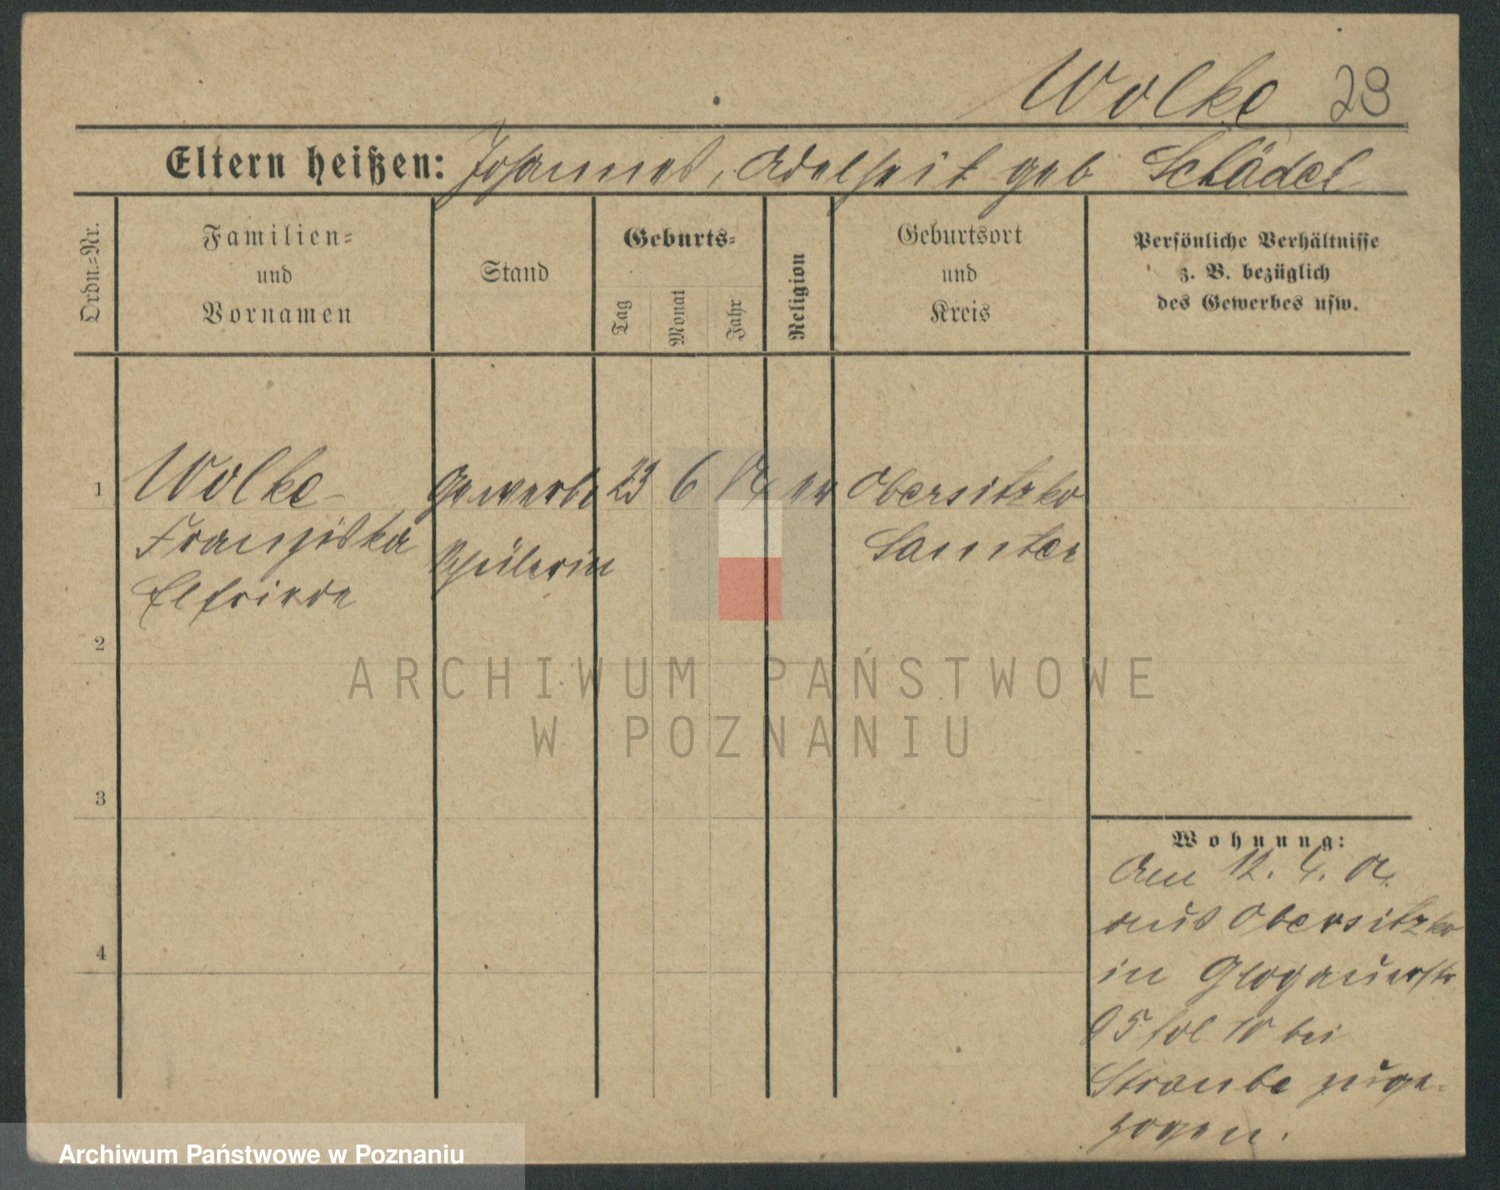 Wolke 23
Eltern heißen: Johannes, Adelheit geb Schädel
Ordn.=Nr.
Familien=
und
Vornamen
Stand
Geburts=
Tag
Monat
Jahr
Religion
Geburtsort
und
Kreis
Persönliche Verhältnisse
z. B. bezüglich
des Gewerbes usw.
1 Wolke Gewerbe 23 6 ev Obersitzko
Franziska Schülerin Samter
Elfriede
2
3
4
ARCHIWUM PAŃSTWOWE
W POZNANIU
Wohnung:
Am 12. 4.
aus Obersitzko
in Glogauerstr
95 fol 10 bei
Straube zuge-
zogen.
Archiwum Państwowe w Poznaniu